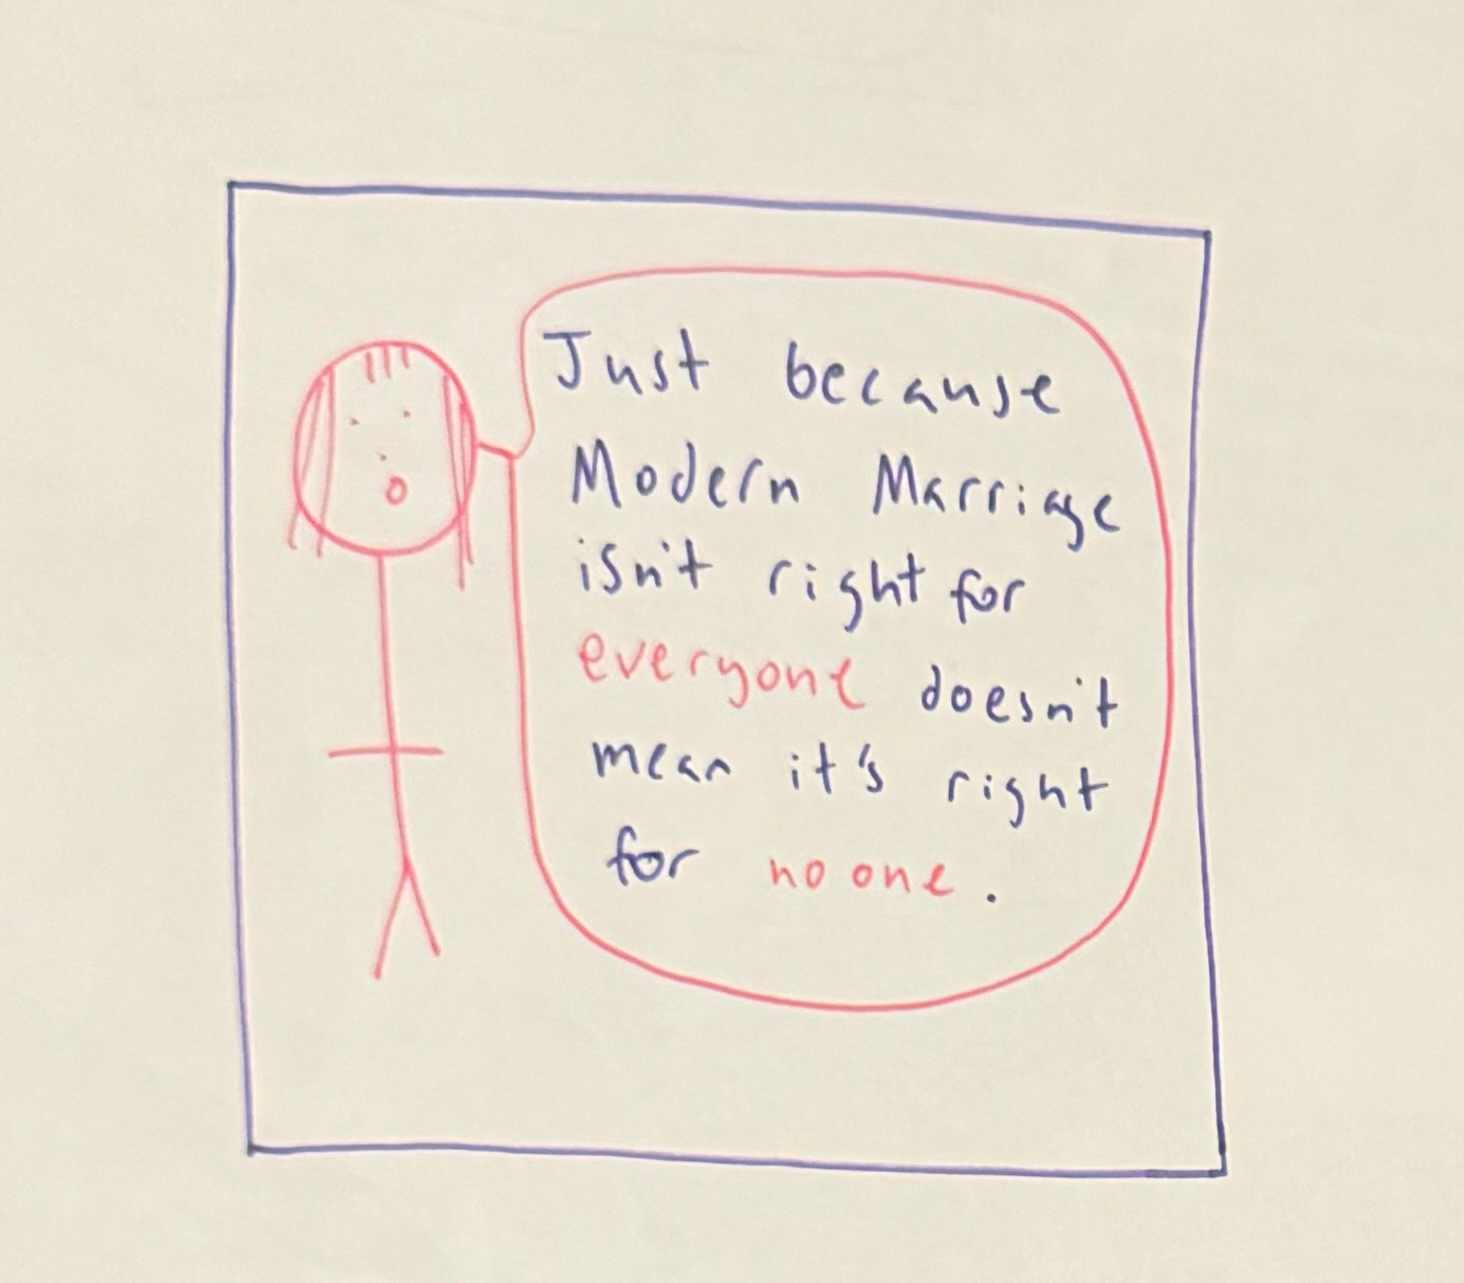 Just because
Modern Marriage
isn't right for
everyone doesn't
mean it's right
for no one.